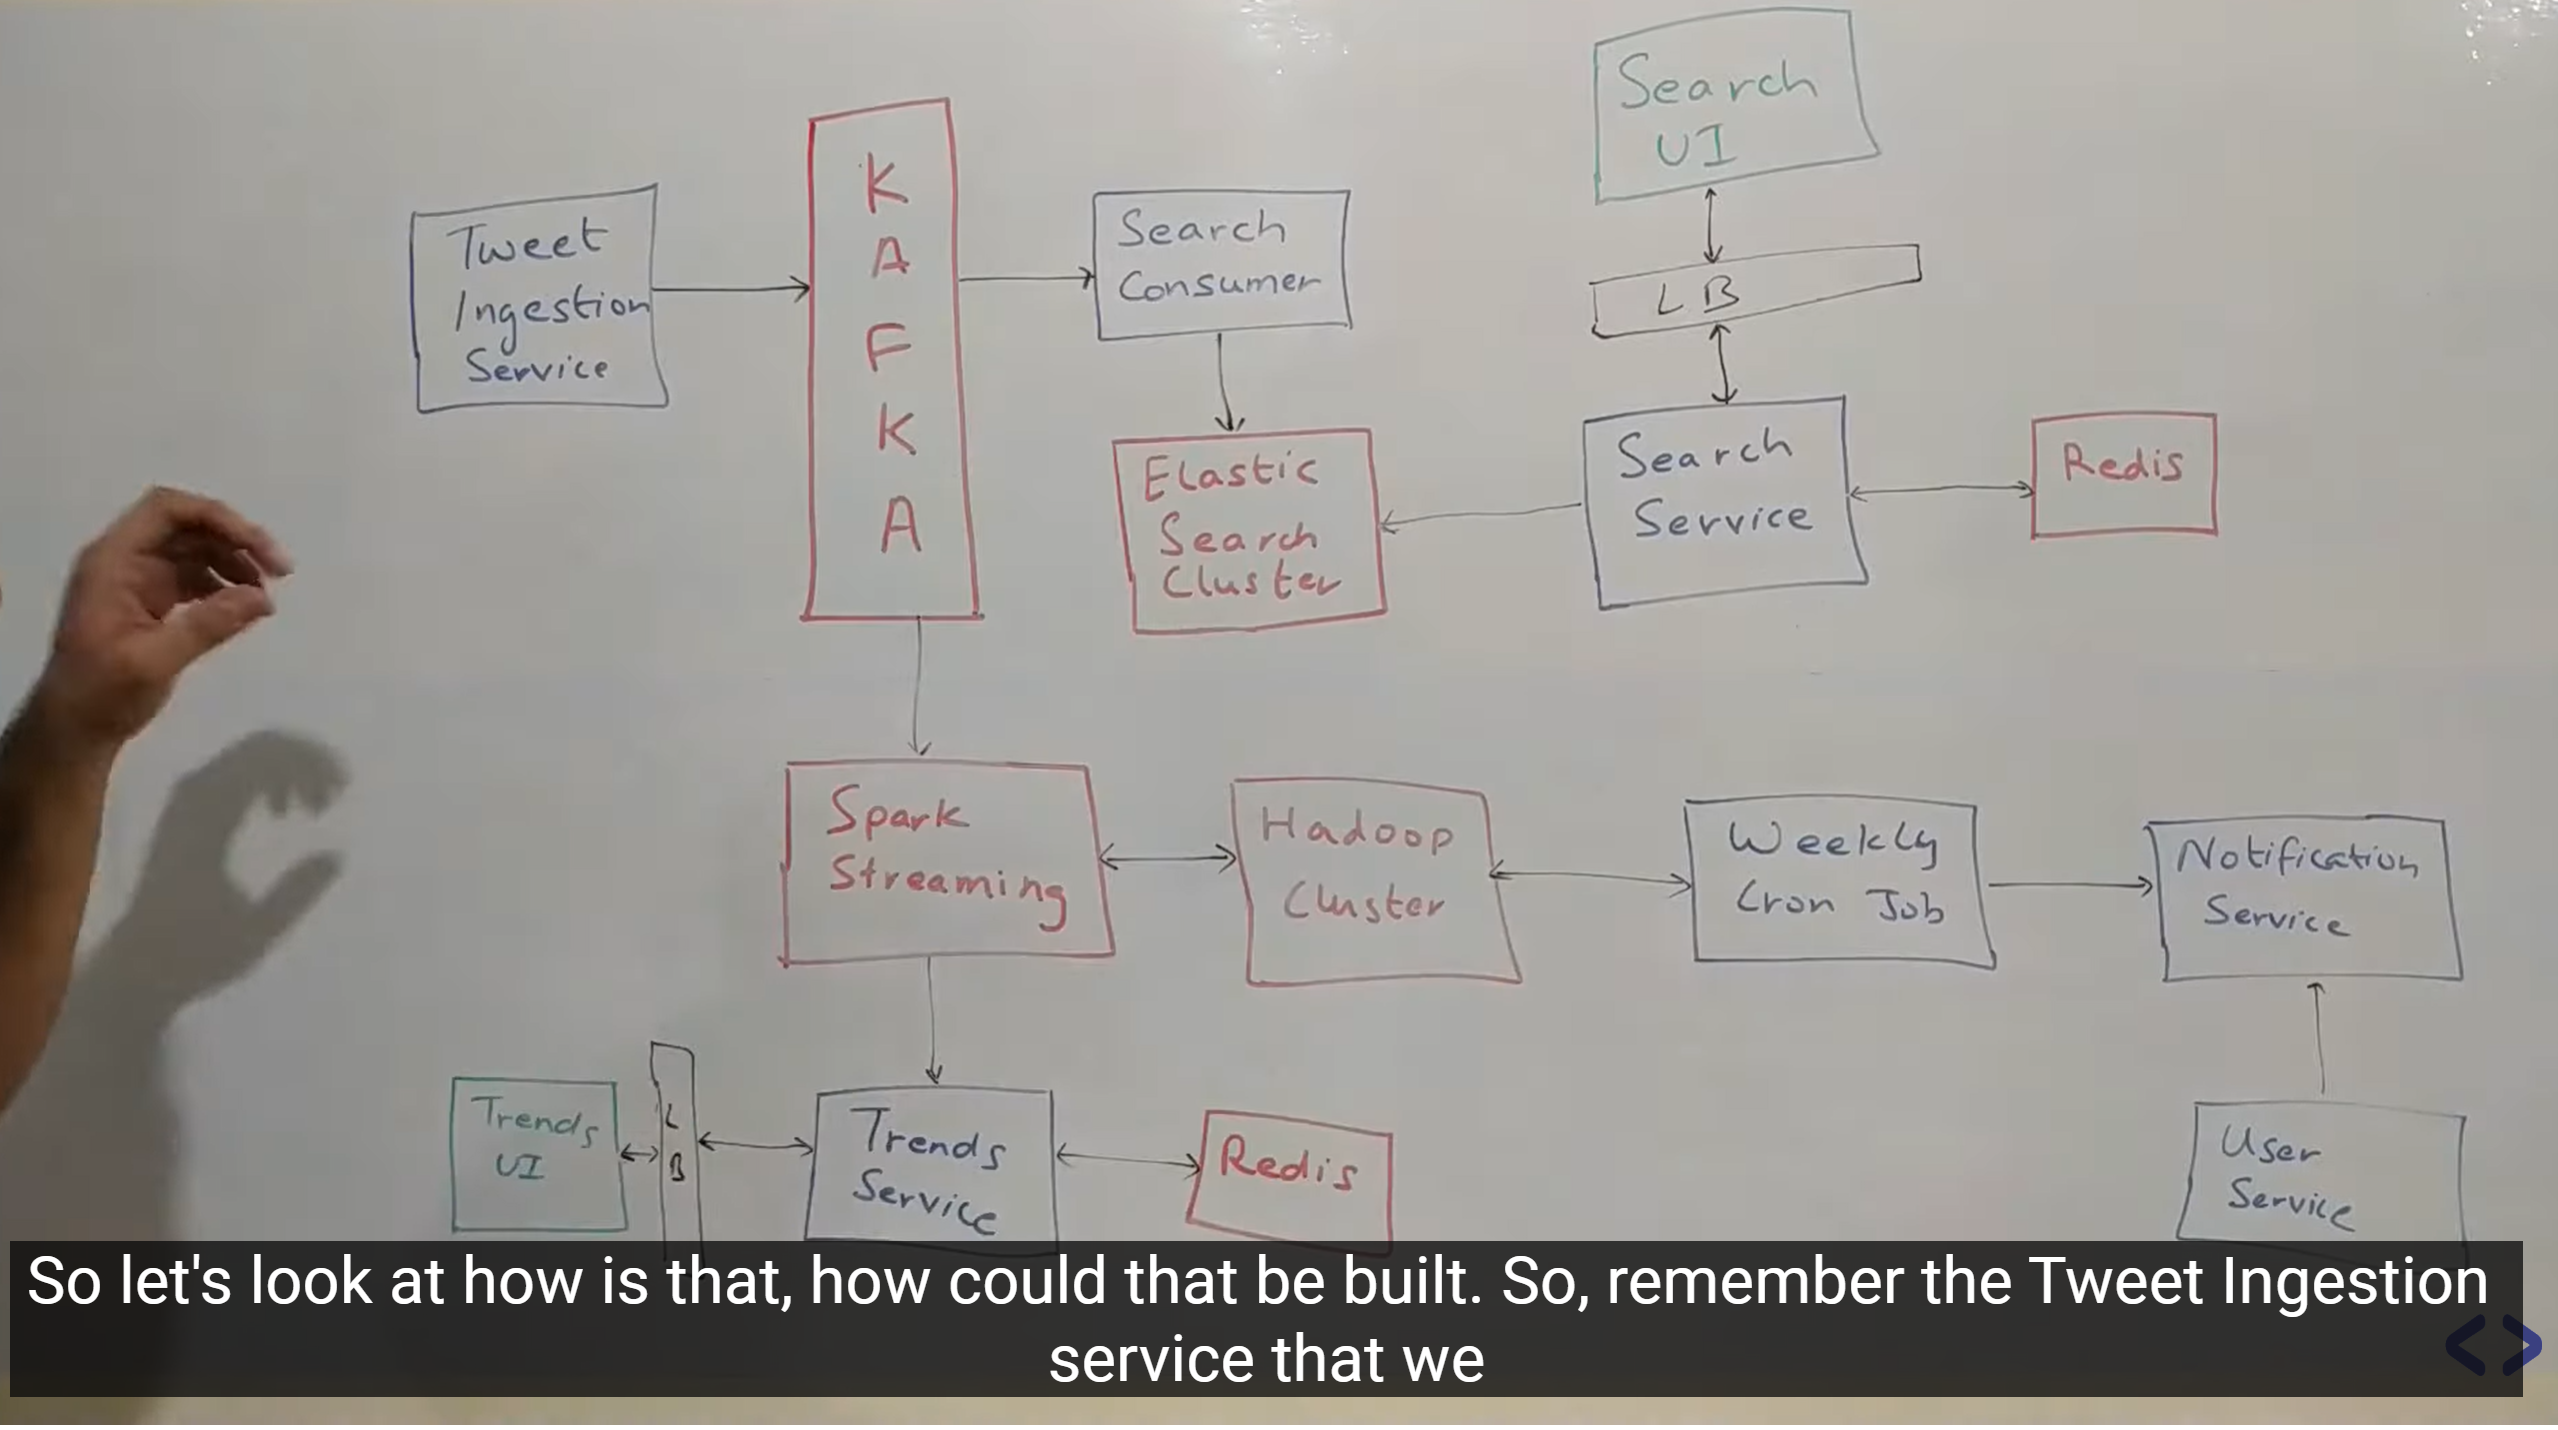 Search
UI
LB
Tweet
Ingestion
Service
K
A
F
K
A
Search
Consumer
Elastic
Search
Cluster
Search
Service
Redis
Spark
Streaming
Hadoop
Cluster
Weekly
Cron Job
Notification
Service
Trends
UI
L
B
Trends
Service
Redis
User
Service
So let's look at how is that, how could that be built. So, remember the Tweet Ingestion
service that we